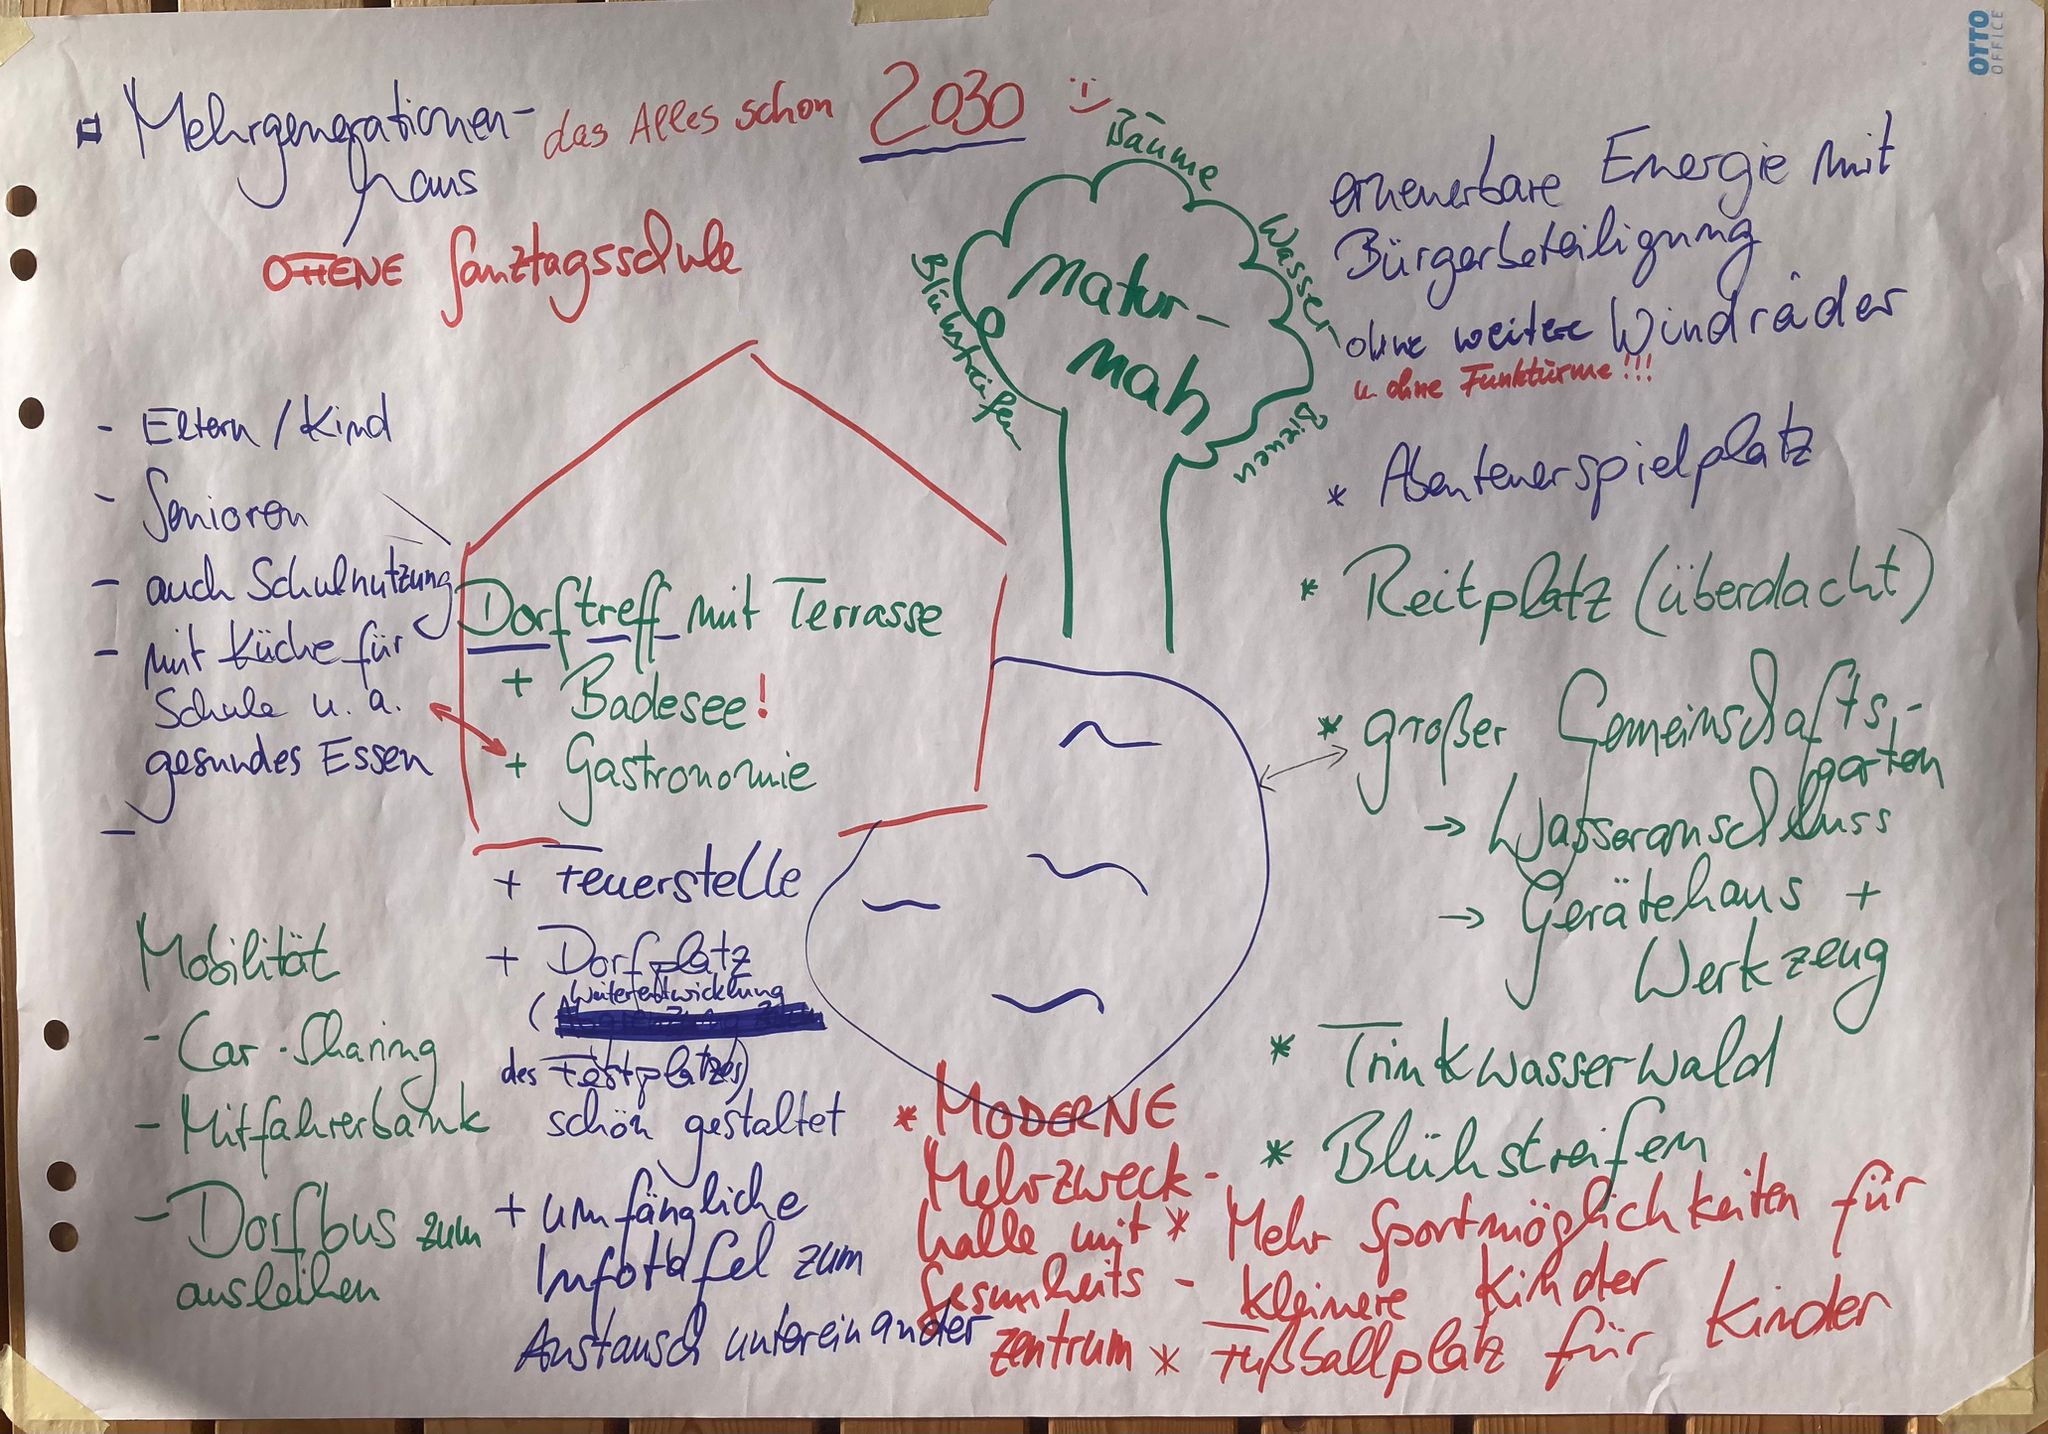 OTTO
OFFICE
Mehrgenerationen-
haus
das Alles schon 2030 :)
OFFENE Ganztagsschule
- Eltern / Kind
- Senioren
- auch Schulnutzung
- mit Küche für
Schule u. a.
gesundes Essen
-
Mobilität
- Car-Sharing
- Mitfahrerbank
- Dorfbus zum
ausleihen
Dorftreff mit Terrasse
+ Badesee!
+ Gastronomie
+ Feuerstelle
+ Dorfplatz
(Weiterentwicklung
des Festplatzes)
schön gestaltet
+ umfängliche
Infotafel zum
Austausch untereinander
Bäume
Wasser
Bienen
Blühstreifen
natur-
nah
erneuerbare Energie mit
Bürgerbeteiligung
ohne weitere Windräder
u. ohne Funktürme!!!
* Abenteuerspielplatz
* Reitplatz (überdacht)
* großer Gemeinschafts-
garten
→ Wasseranschluss
→ Gerätehaus +
Werkzeug
* Trinkwasserwald
* Blühstreifen
* MODERNE
Mehrzweck-
halle mit
Gesunheits-
zentrum
* Mehr Sportmöglichkeiten für
kleinere Kinder
* Fußballplatz für Kinder